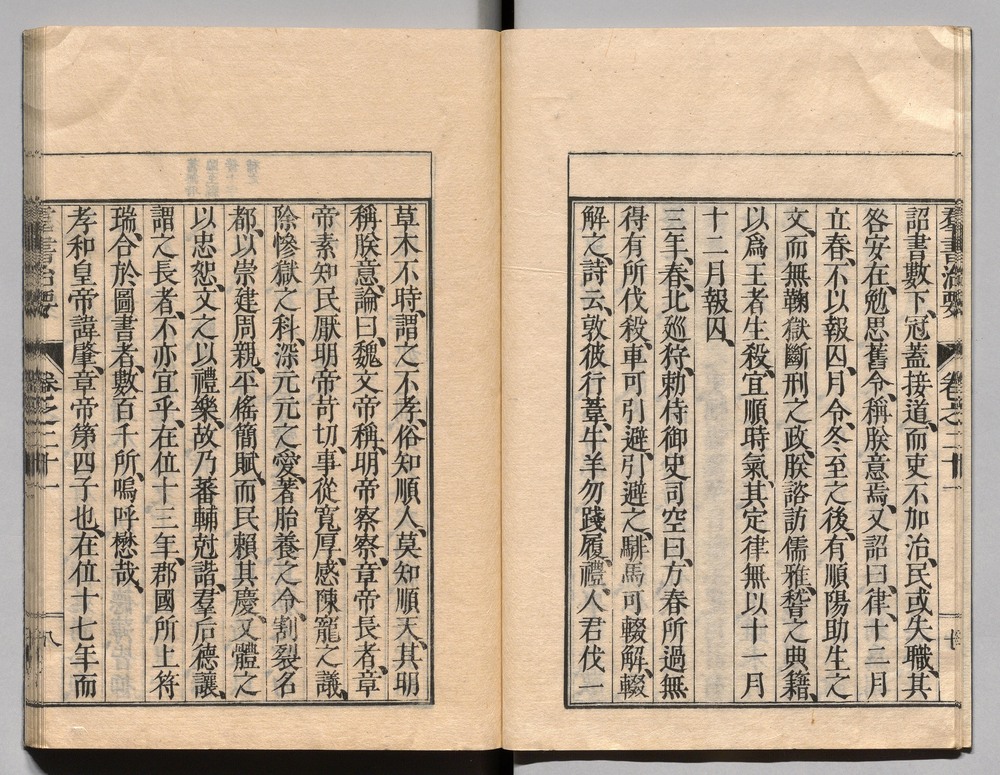 羣書治要 卷之二十一
詔書數下、冠蓋接道、而吏不加治、民或失職、其
咎安在、勉思舊令、稱朕意焉、又詔曰、律、十二月
立春、不以報囚、月令、冬至之後、有順陽助生之
文、而無鞠獄斷刑之政、朕諮訪儒雅、稽之典籍、
以爲王者生殺、宜順時氣、其定律無以十一月
十二月報囚、
三年、春、北巡狩、勅侍御史司空曰、方春所過無
得有所伐殺、車可引避、引避之、騑馬可輟解、輟
解之、詩云、敦彼行葦、牛羊勿踐履、禮、人君伐一
草木不時、謂之不孝、俗知順人、莫知順天、其明
稱朕意、論曰、魏文帝稱、明帝察察、章帝長者、章
帝素知民厭明帝苛切、事從寬厚、感陳寵之議、
除慘獄之科、深元元之愛、著胎養之令、割裂名
都、以崇建周親、平徭簡賦、而民賴其慶、又體之
以忠恕、文之以禮樂、故乃蕃輔尅諧、羣后德讓、
謂之長者、不亦宜乎、在位十三年、郡國所上符
瑞、合於圖書者、數百千所、嗚呼懋哉、
孝和皇帝諱肇、章帝第四子也、在位十七年而
羣書治要 卷之二十一 八